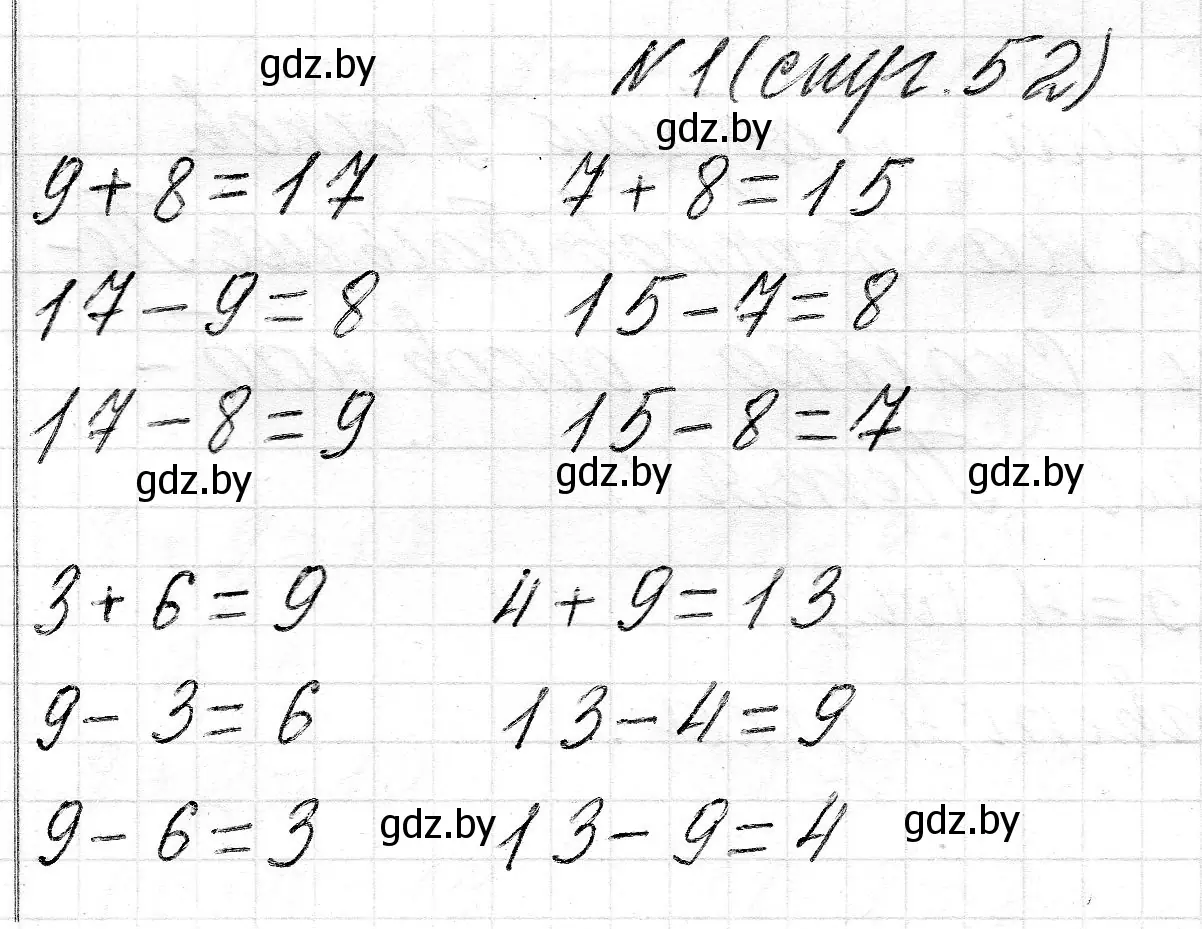 gdz.by
№ 1 (стр. 52)
gdz.by
9 + 8 = 17 7 + 8 = 15
17 - 9 = 8 15 - 7 = 8
17 - 8 = 9 15 - 8 = 7
gdz.by gdz.by gdz.by
3 + 6 = 9 4 + 9 = 13
9 - 3 = 6 13 - 4 = 9
9 - 6 = 3 gdz.by 13 - 9 = 4 gdz.by